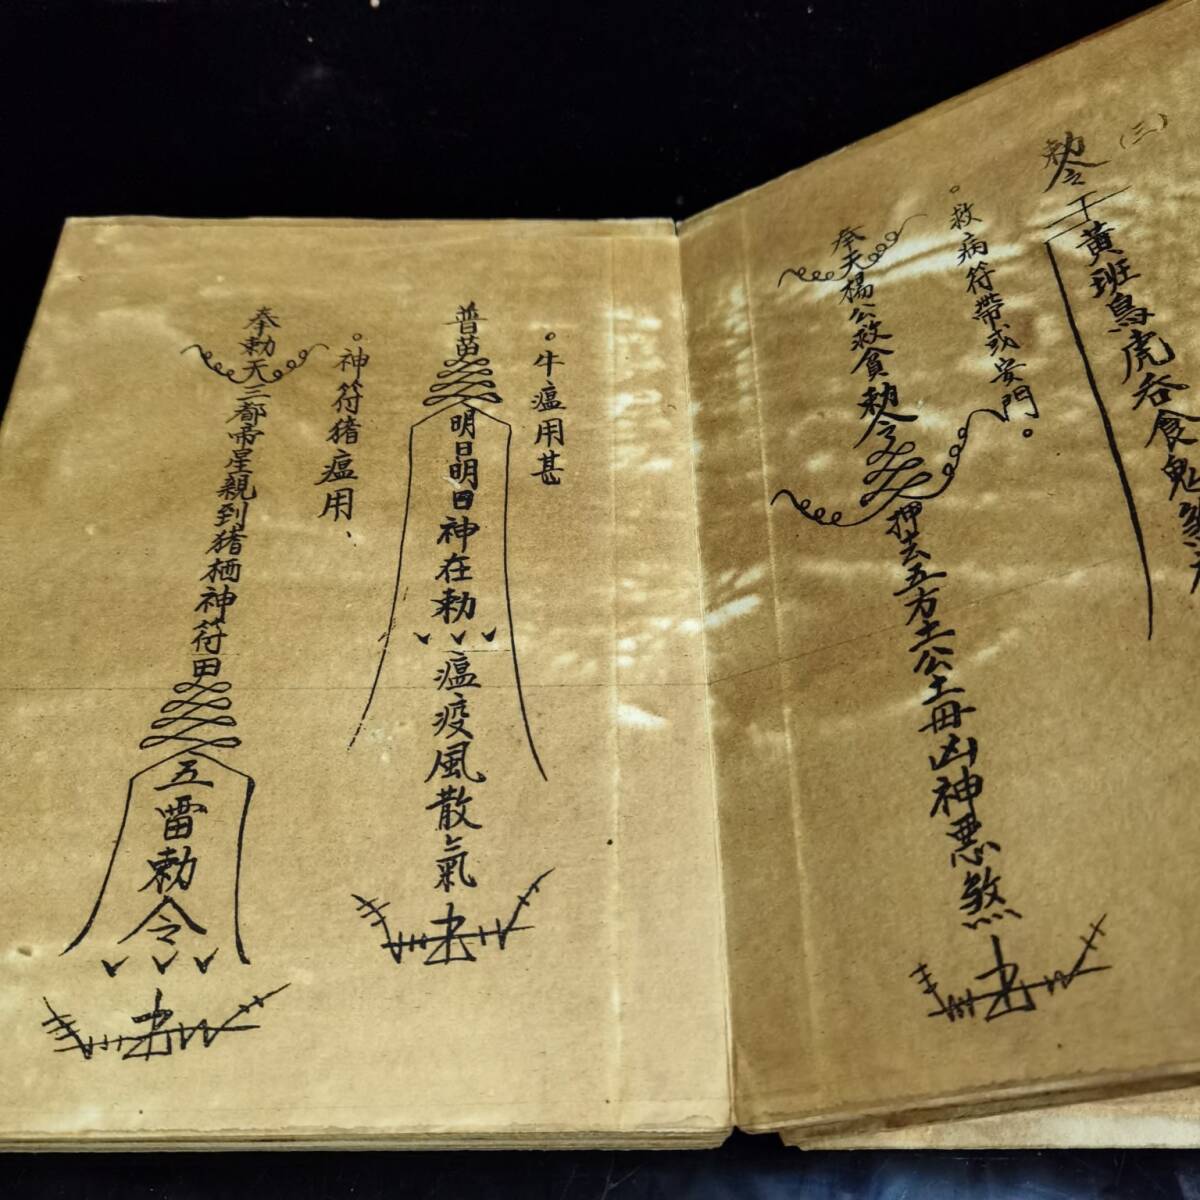 (三)
勅令
黃班鳥虎吞食鬼
。救病符帶或安門。
奉天楊公救貧勅令
押去五方土公土毋凶神悪煞
。牛瘟用甚
普苗
明日明日神在勅
瘟疫風散氣
。神符猪瘟用、
奉勅天三都帝星親到猪栖神符田
五雷勅令